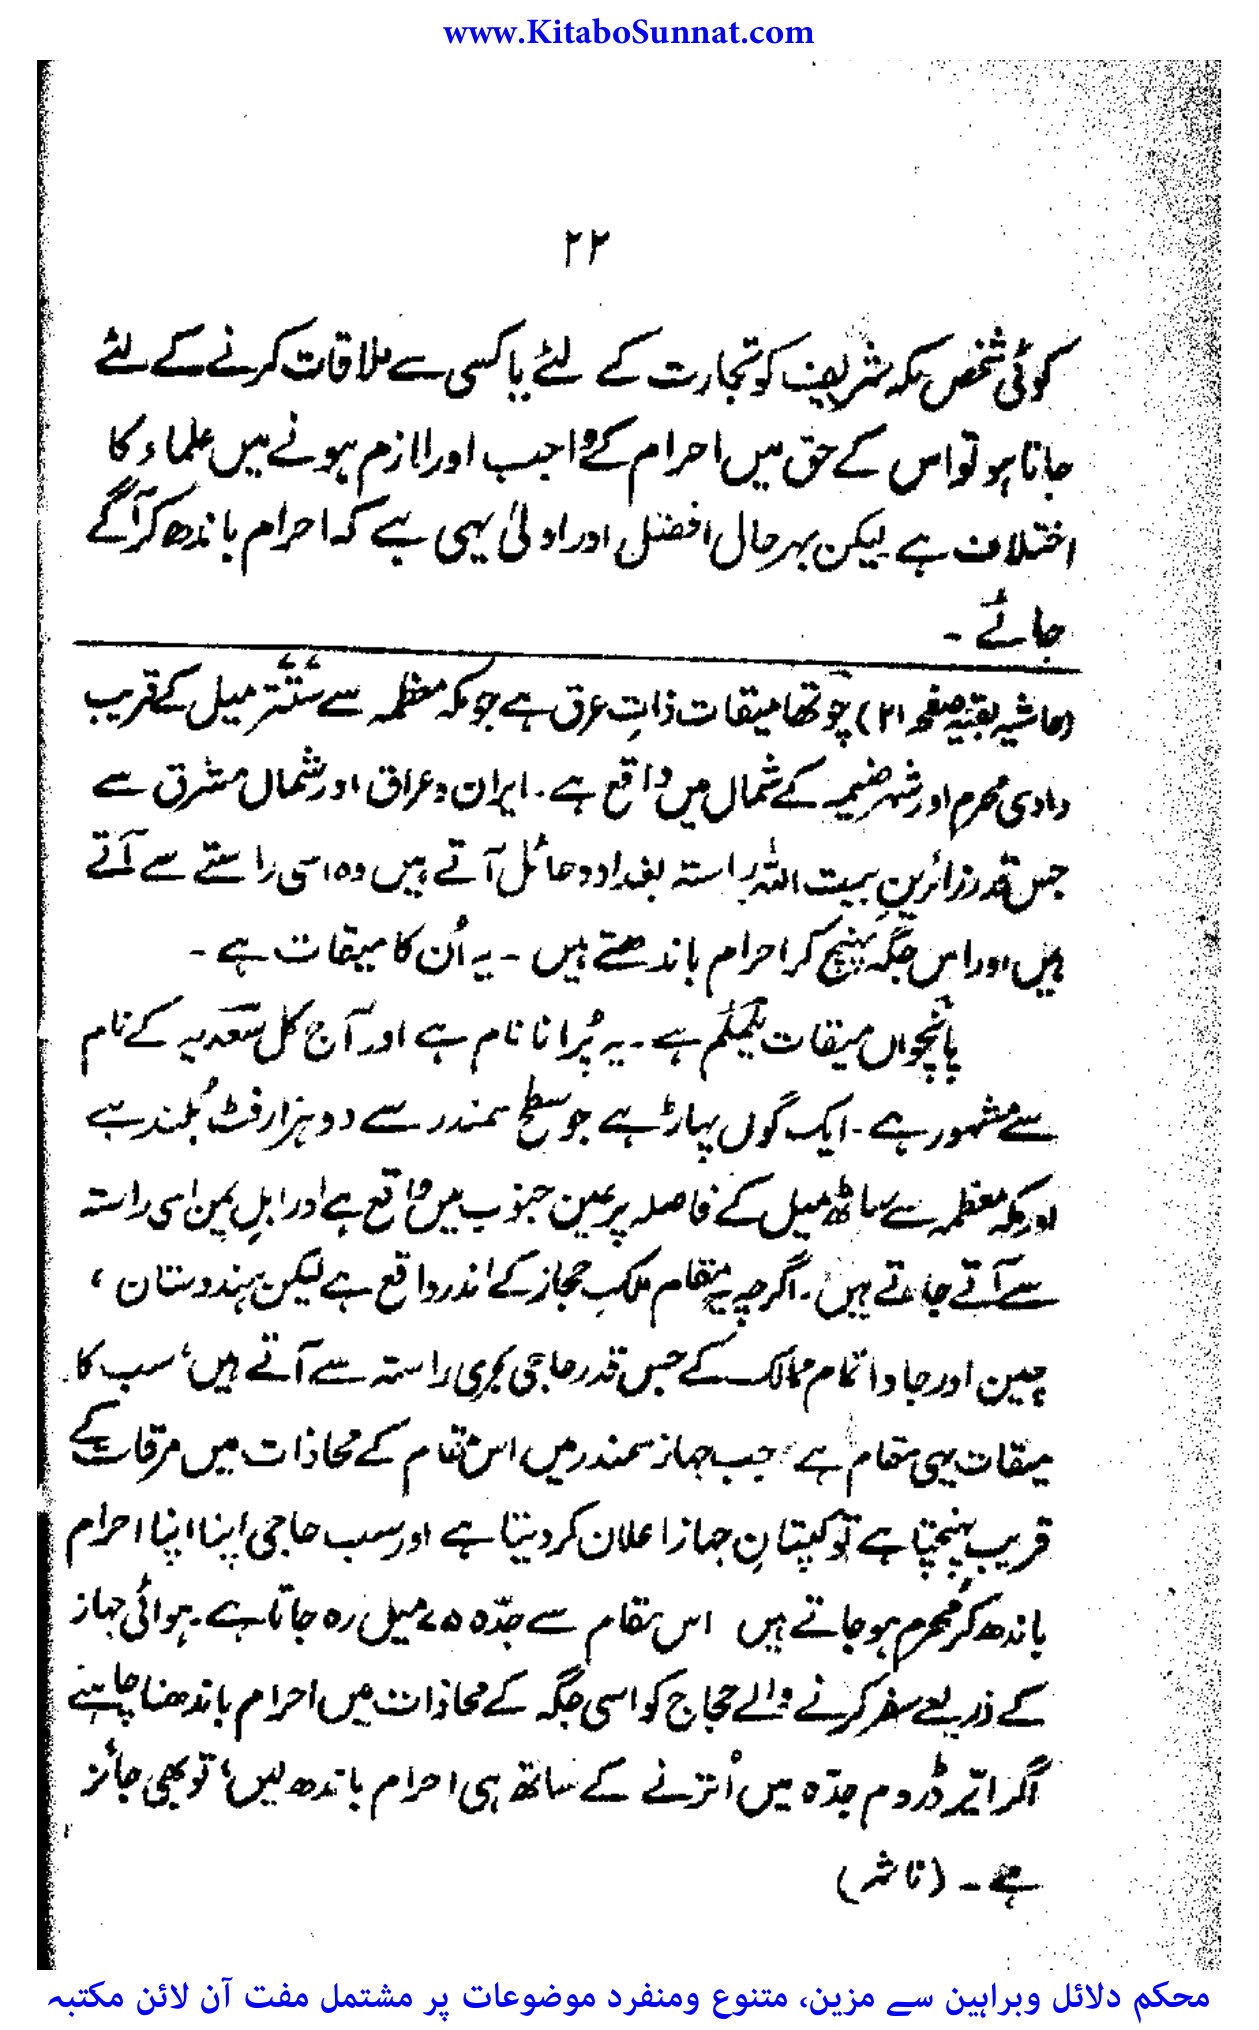 www.KitaboSunnat.com
۲۲
کوئی شخص مکہ شریف کو تجارت کے لئے یا کسی سے ملاقات کرنے کے لئے
جاتا ہو تو اس کے حق میں احرام کے واجب اور لازم ہونے میں علماء کا
اختلاف ہے لیکن بہر حال افضل اور اولیٰ یہی ہے کہ احرام باندھ کر آگے
جائے ۔
(حاشیہ بقیہ صفحہ ۲۱) چوتھا میقات ذاتِ عرق ہے جو مکہ معظمہ سے ستتر میل کے قریب
وادی محرم اور شہر ضیمہ کے شمال میں واقع ہے ۔ ایران و عراق اور شمال مشرق سے
جس قدر زائرینِ بیت اللہ براستہ بغداد و حائل آتے ہیں وہ اسی راستے سے آتے
ہیں اور اس جگہ پہنچ کر احرام باندھتے ہیں ۔ یہ اُن کا میقات ہے ۔
پانچواں میقات یَلَمْلَم ہے ۔ یہ پُرانا نام ہے اور آج کل سَعدیہ کے نام
سے مشہور ہے ۔ ایک گول پہاڑ ہے جو سطح سمندر سے دو ہزار فٹ بُلند ہے
اور مکہ معظمہ سے ساٹھ میل کے فاصلہ پر عین جنوب میں واقع ہے اور اہلِ یمن اسی راستہ
سے آتے جاتے ہیں ۔ اگرچہ یہ مقام ملکِ حجاز کے اندر واقع ہے لیکن ہندوستان ،
چین اور جاوا تمام ممالک کے جس قدر حاجی بحری راستہ سے آتے ہیں، سب کا
میقات یہی مقام ہے جب جہاز سمندر میں اس مقام کے محاذات میں مرقات کے
قریب پہنچتا ہے تو کپتانِ جہاز اعلان کر دیتا ہے اور سب حاجی اپنا اپنا احرام
باندھ کر مُحرم ہو جاتے ہیں اس مقام سے جدّہ ۷۵ میل رہ جاتا ہے ۔ ہوائی جہاز
کے ذریعے سفر کرنے والے حجاج کو اسی جگہ کے محاذات میں احرام باندھنا چاہیئے
اگر ایّر ڈروم جدّہ میں اُترنے کے ساتھ ہی احرام باندھ لیں، تو بھی جائز
ہے ۔ (ناشر)
محکم دلائل وبراہین سے مزین، متنوع ومنفرد موضوعات پر مشتمل مفت آن لائن مکتبہ